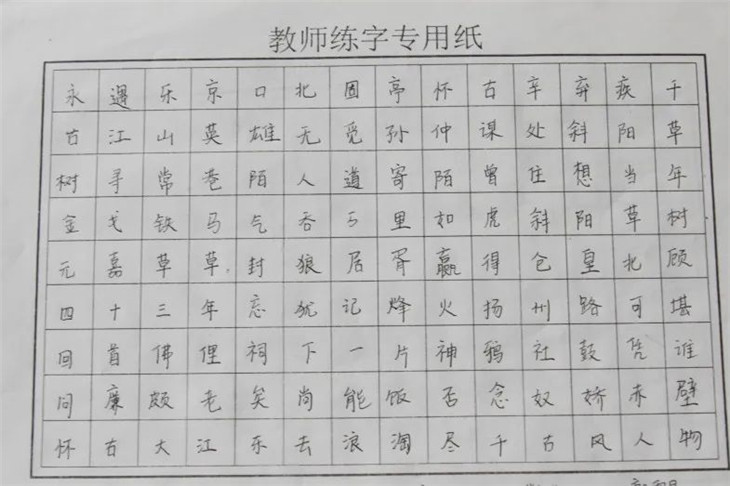 教师练字专用纸
永遇乐京口北固亭怀古辛弃疾千
古江山英雄无觅孙仲谋处斜阳草
树寻常巷陌人道寄陌曾住想当年
金戈铁马气吞万里如虎斜阳草树
元嘉草草封狼居胥赢得仓皇北顾
四十三年忘犹记烽火扬州路可堪
回首佛狸祠下一片神鸦社鼓凭谁
问廉颇老矣尚能饭否念奴娇赤壁
怀古大江东去浪淘尽千古风人物